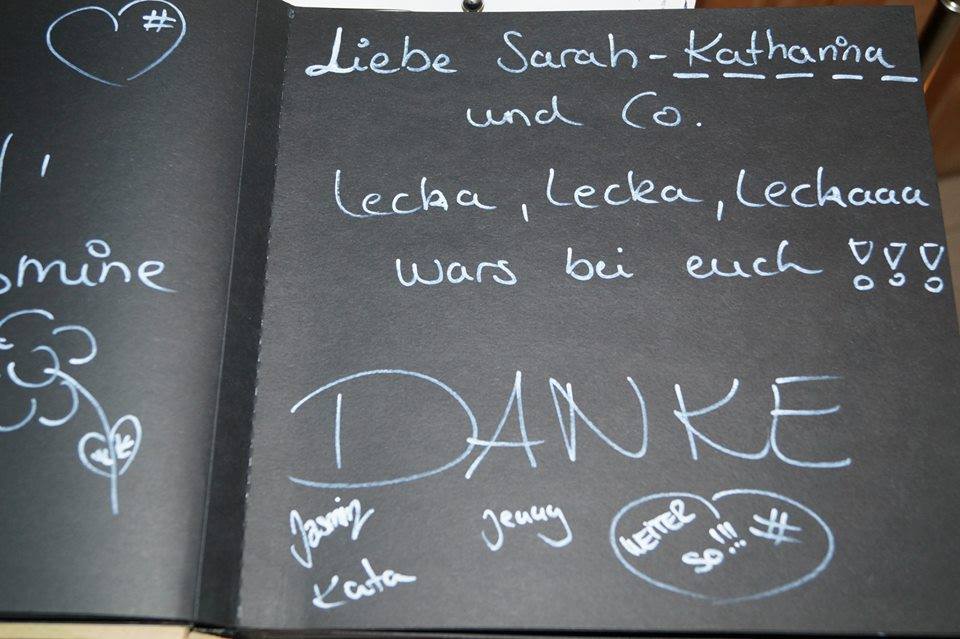 #
smine
Liebe Sarah-Katharina
und Co.
Lecka, Lecka, Leckaaa
wars bei euch !!!
DANKE
Jasmin Jenny
Kata
WEITER
SO!!! #